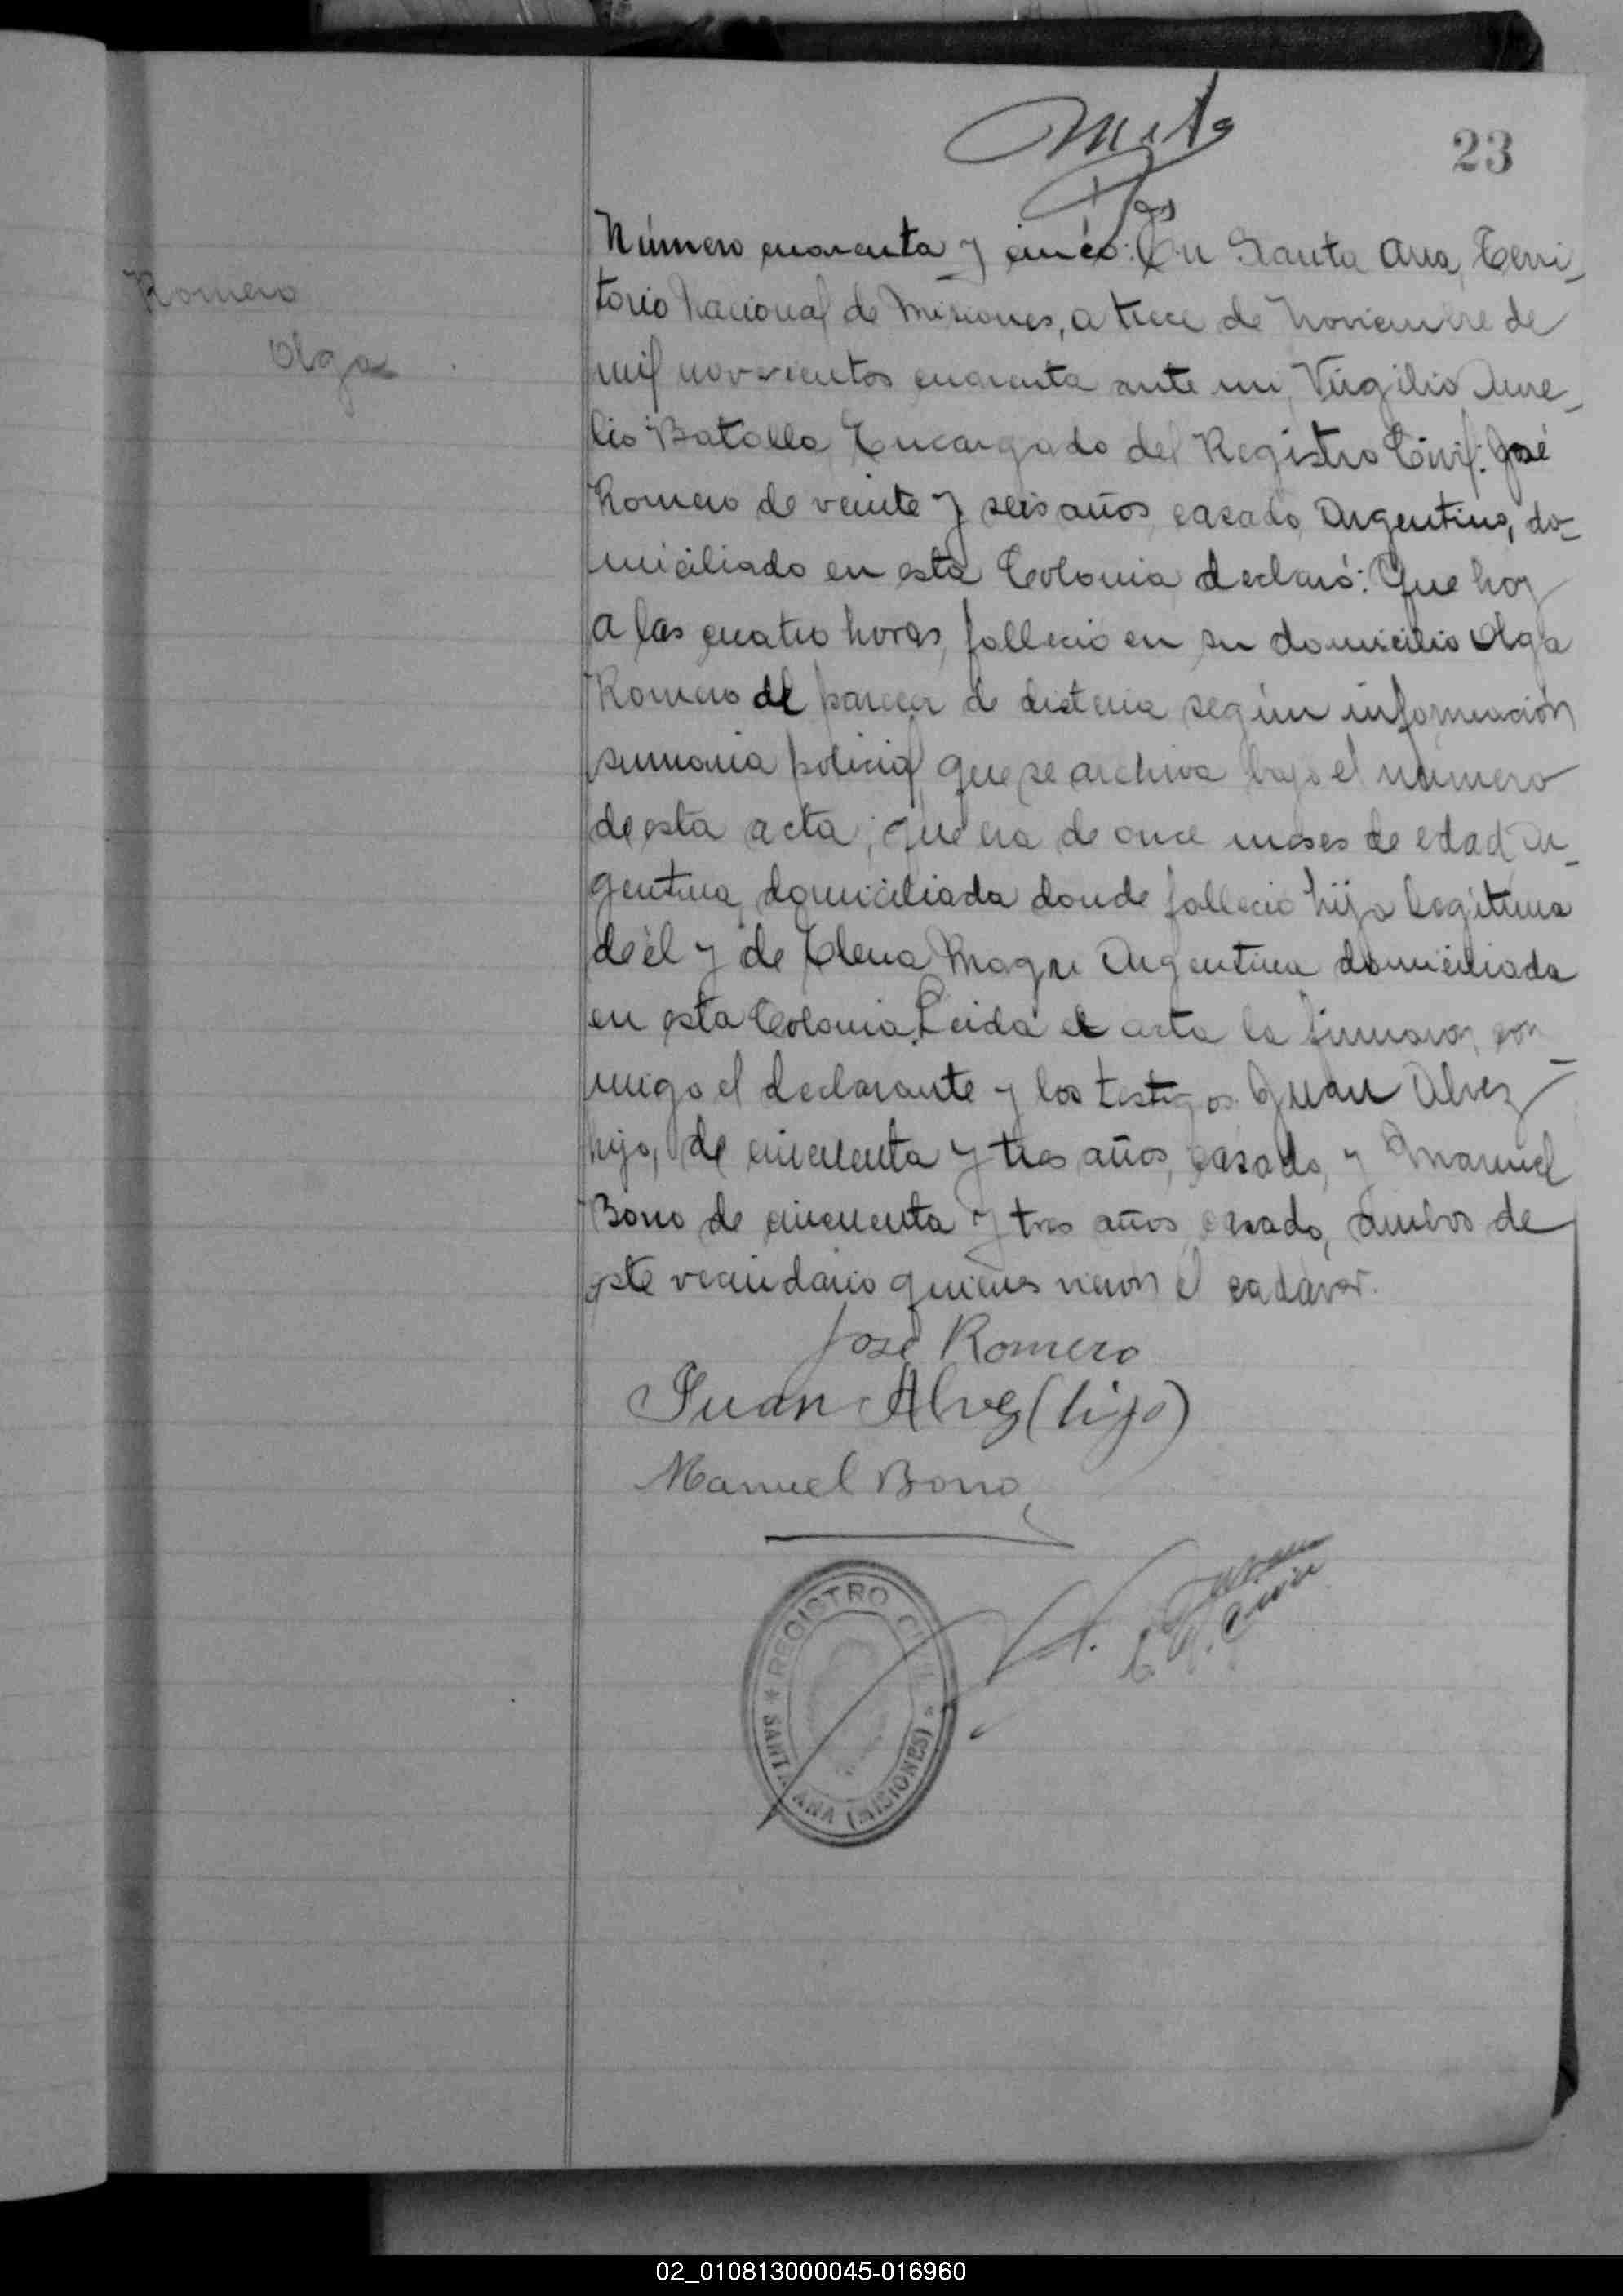 23
Romero
Olga
Número cuarenta y cinco: En Santa Ana, Terri-
torio Nacional de Misiones, a trece de Noviembre de
mil novecientos cuarenta ante mi, Virgilio Aure-
lio Batalla Encargado del Registro Civil: José
Romero de veinte y seis años, casado, Argentino, do-
miciliado en esta Colonia declaró: Que hoy
a las cuatro horas, fallecio en su domicilio Olga
Romero al parecer de dicteria según información
sumaria policial, que se archiva bajo el número
de esta acta; que era de once meses de edad, Ar-
gentina, domiciliada donde fallecio hija legítima
de él y de Elena Argentina domiciliada
en esta Colonia. Leida el acta la firmaron con
migo el declarante y los testigos Juan Alvez
hijo, de cincuenta y tres años, casado, y Manuel
Bono de cincuenta y tres años, casado, ambos de
este vecindario quienes vieron el cadáver.
José Romero
Juan Alvez (hijo)
Manuel Bono
REGISTRO CIVIL
SANTA ANA (MISIONES)
02_010813000045-016960